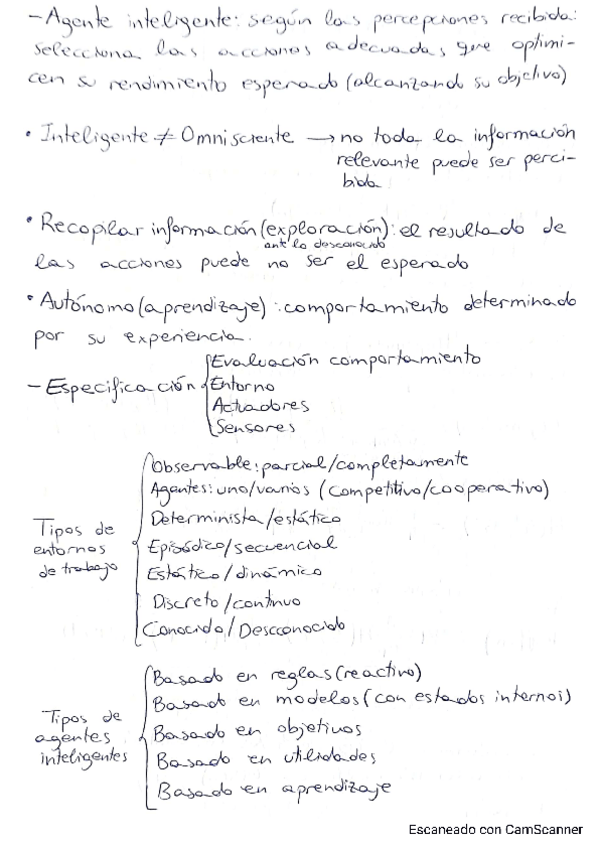 - Agente inteligente: según las percepciones recibida:
selecciona las acciones adecuadas que optimi-
cen su rendimiento esperado (alcanzando su objetivo)
• Inteligente ≠ Omnisciente → no toda la información
relevante puede ser perci-
bida
• Recopilar información (exploración): el resultado de
ante lo desconocido
las acciones puede no ser el esperado
• Autónomo (aprendizaje): comportamiento determinado
por su experiencia.
- Especificación
Evaluación comportamiento
Entorno
Actuadores
Sensores
Tipos de
entornos
de trabajo
Observable: parcial/completamente
Agentes: uno/varios (competitivo/cooperativo)
Determinista/estático
Episódico/secuencial
Estático/dinámico
Discreto/continuo
Conocido/Descconocido
Tipos de
agentes
inteligentes
Basado en reglas (reactivo)
Basado en modelos (con estados internos)
Basado en objetivos
Basado en utilidades
Basado en aprendizaje
Escaneado con CamScanner